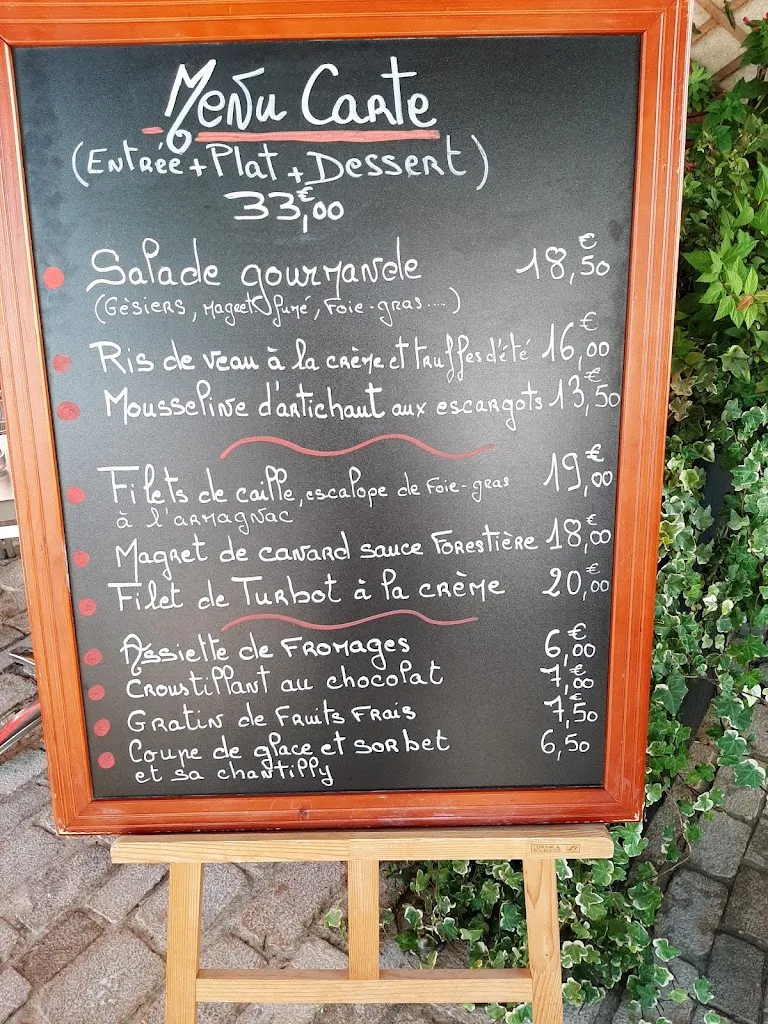 Menu Carte
(Entrée + Plat + Dessert)
33,00€
Salade gourmande 18,50€
(Gésiers, Magret fumé, Foie-gras....)
Ris de veau à la crème et truffes d'été 16,00€
Mousseline d'artichaut aux escargots 13,50€
Filets de caille, escalope de Foie-gras 19,00€
à l'armagnac
Magret de canard sauce Forestière 18,00€
Filet de Turbot à la crème 20,00€
Assiette de Fromages 6,00€
Croustillant au chocolat 7,00€
Gratin de Fruits Frais 7,50€
Coupe de glace et sorbet 6,50
et sa chantilly